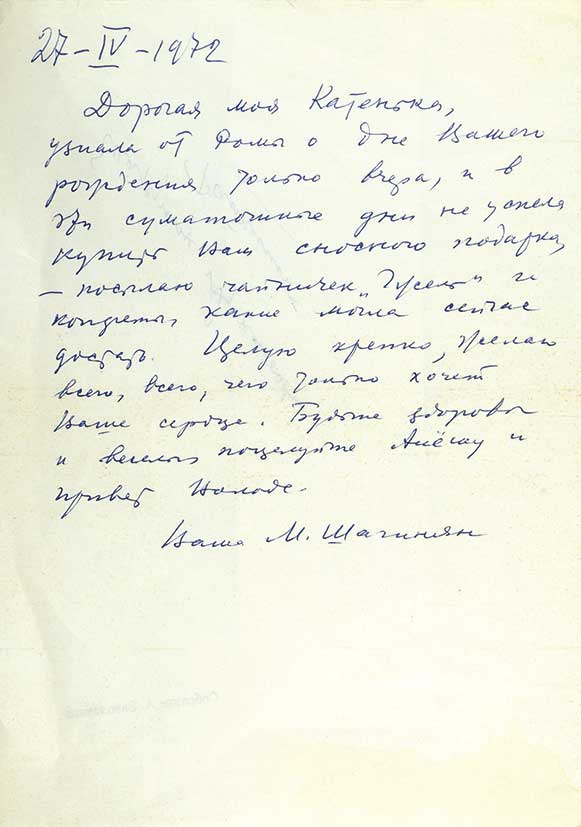 27-IV-1972
Дорогая моя Катенька,
узнала от Ромы о дне Вашего
рождения только вчера, и в
эти суматошные дни не успела
купить Вам сносного подарка,
— посылаю чайничек „Гжель" и
конфеты, какие могла сейчас
достать. Целую крепко, желаю
всего, всего, чего только хочет
Ваше сердце. Будьте здоровы
и веселы, поцелуйте Алёшу и
привет Володе.
Ваша М. Шагинян